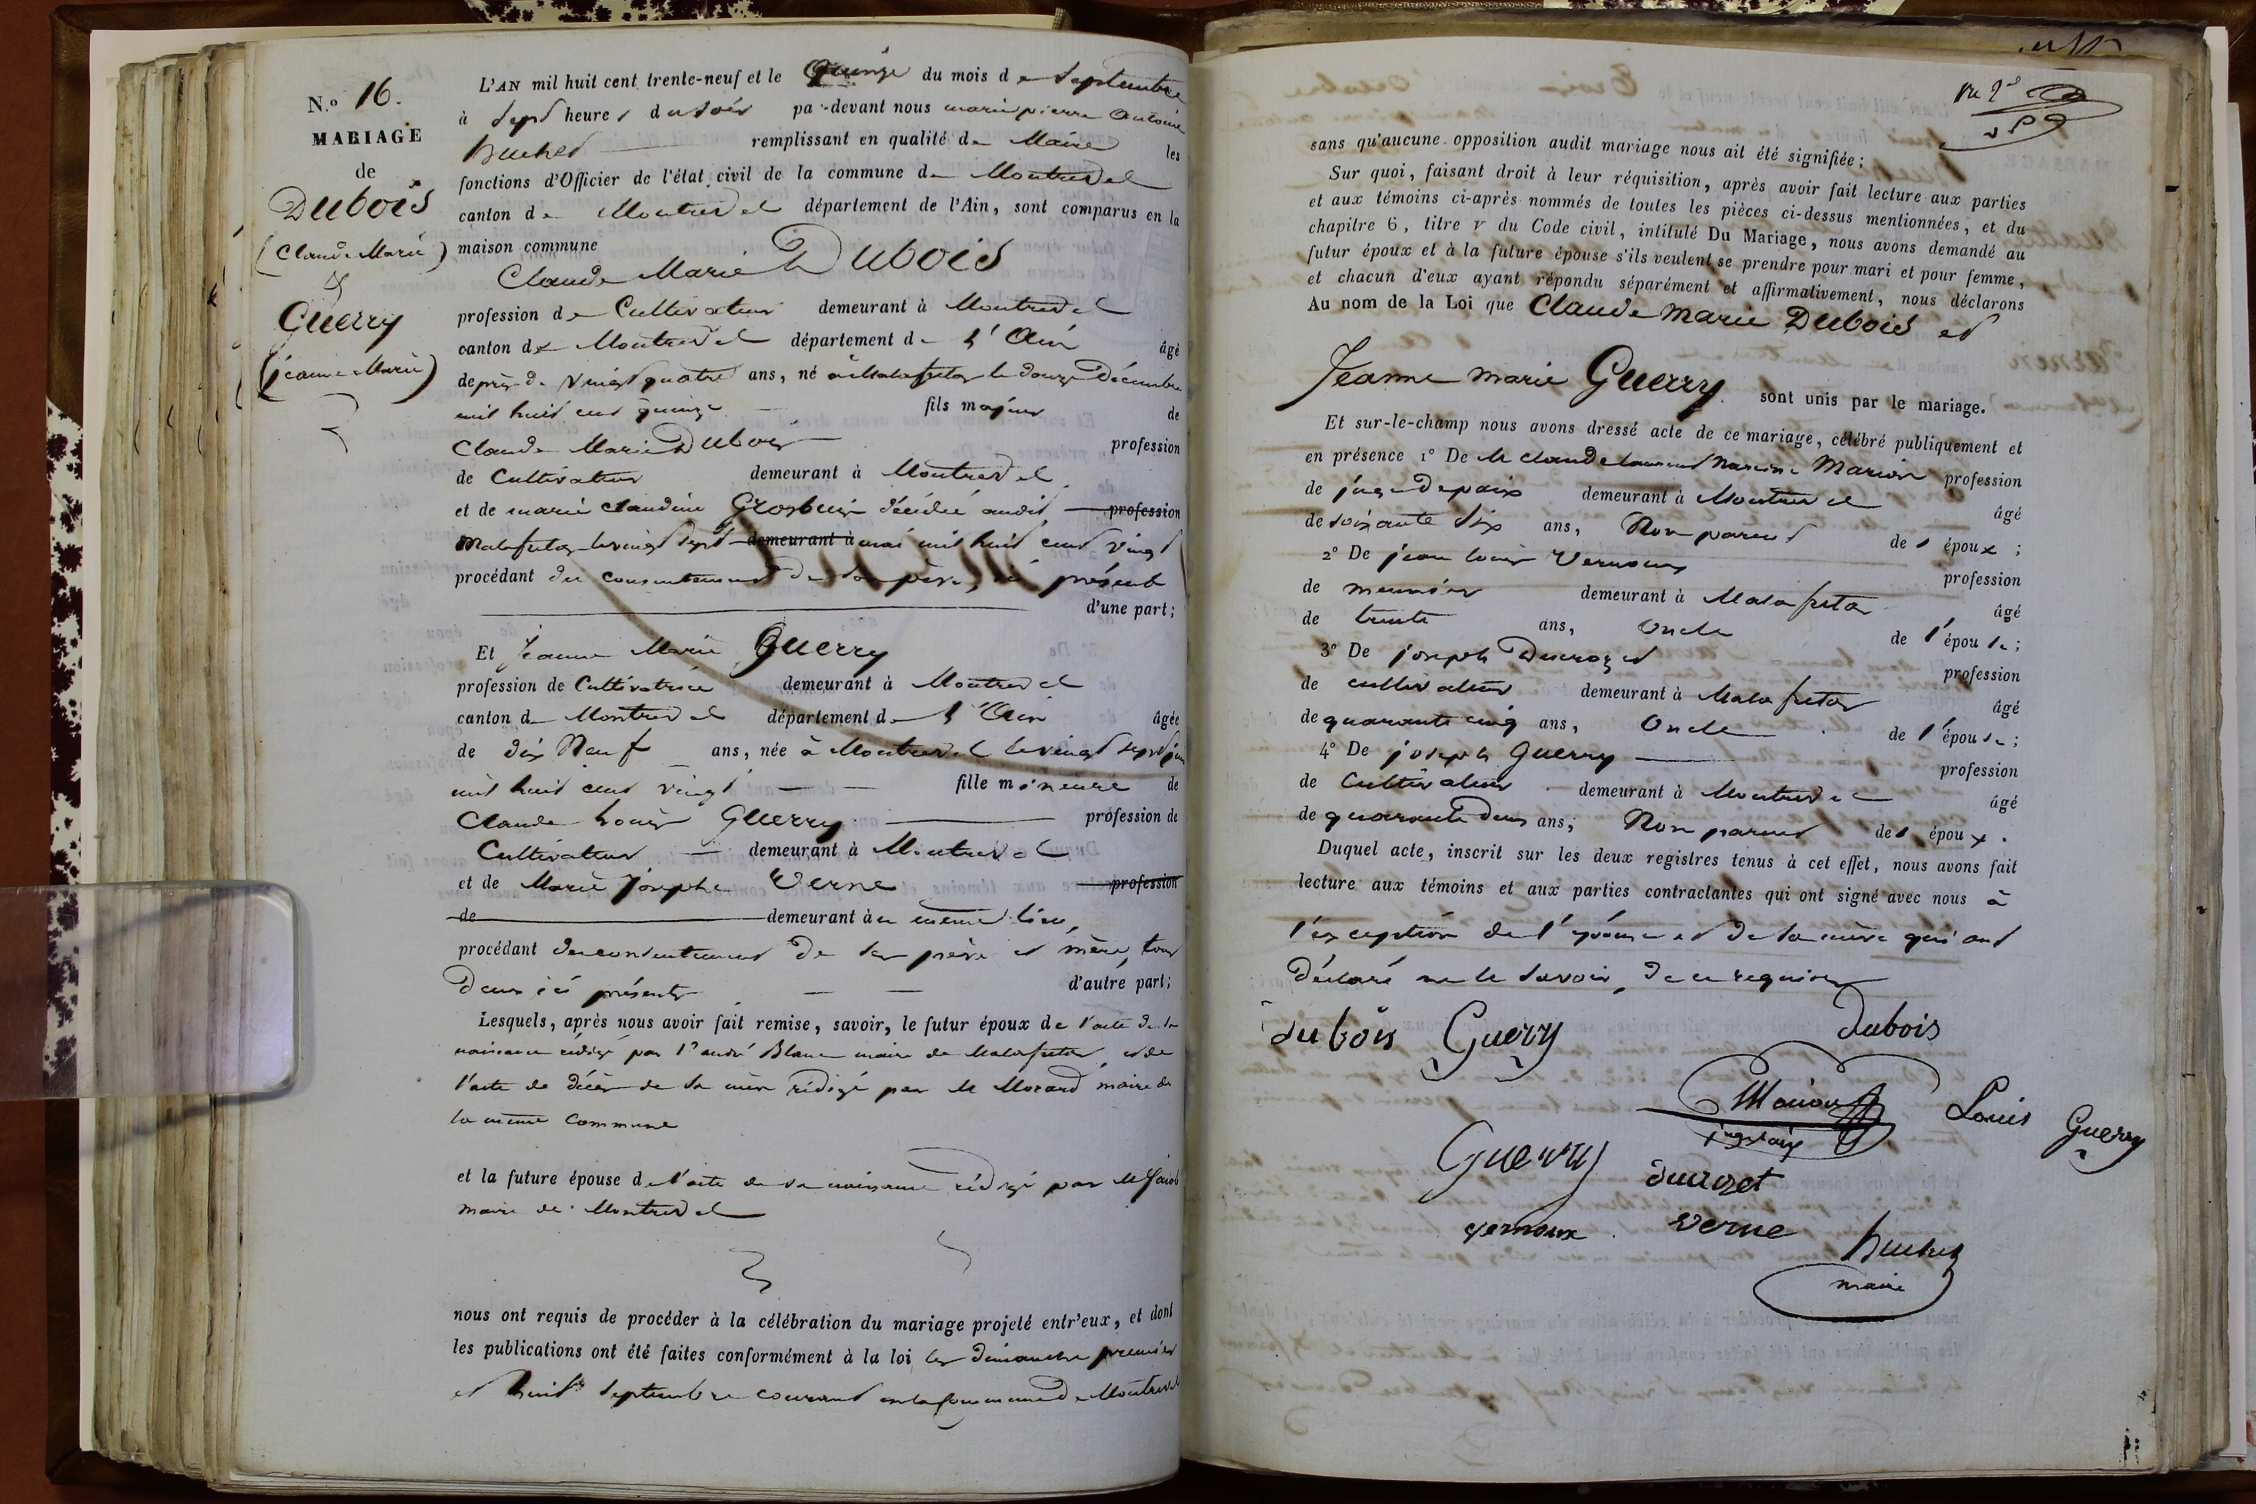 N.o 16.
MARIAGE
de
Dubois
(Claude Marie)
&
Guerry
(jeanne Marie)
L'AN mil huit cent trente-neuf et le Quinze du mois de Septembre
à Sept heures du soir pa-devant nous marie pierre Antoine
remplissant en qualité de Maire les
fonctions d'Officier de l'état civil de la commune de Montrevel
canton de Montrevel département de l'Ain, sont comparus en la
maison commune
Claude Marie Dubois
profession de Cultivateur demeurant à Montrevel
canton de Montrevel département de l'Ain âgé
de près de vingt quatre ans, né à Malafretaz le douze Décembre
mil huit cent quinze fils majeur de
Claude Marie Dubois profession
de Cultivateur demeurant à Montrevel
et de marie claudine Grosbuis décédée audit profession
Malafretaz le vingt sept demeurant à mai mil huit cent vingt
procédant du consentement de son père, ici présent
d'une part;
Et Jeanne Marie Guerry
profession de Cultivatrice demeurant à Montrevel
canton de Montrevel département de l'Ain âgée
de dix Neuf ans, née à Montrevel le vingt sept juin
mil huit cent vingt fille mineure de
Claude Louis Guerry profession de
Cultivateur demeurant à Montrevel
et de Marie Josephe Verne profession
de demeurant à ce même lieu,
procédant du consentement de ses père et mère, tous
deux ici présents d'autre part;
Lesquels, après nous avoir fait remise, savoir, le futur époux de l'acte de sa
naissance rédigé par Mr andré Blanc maire de Malafretaz, et de
l'acte de décès de sa mère rédigé par Mr Morand maire de
la même commune
et la future épouse de l'acte de sa naissance rédigé par Mr
maire de Montrevel
nous ont requis de procéder à la célébration du mariage projeté entr'eux, et dont
les publications ont été faites conformément à la loi les dimanches premier
et huit septembre courant en la commune de Montrevel
sans qu'aucune opposition audit mariage nous ait été signifiée;
Sur quoi, faisant droit à leur réquisition, après avoir fait lecture aux parties
et aux témoins ci-après nommés de toutes les pièces ci-dessus mentionnées, et du
chapitre 6, titre v du Code civil, intitulé Du Mariage, nous avons demandé au
futur époux et à la future épouse s'ils veulent se prendre pour mari et pour femme,
et chacun d'eux ayant répondu séparément et affirmativement, nous déclarons
Au nom de la Loi que Claude Marie Dubois et
Jeanne Marie Guerry sont unis par le mariage.
Et sur-le-champ nous avons dressé acte de ce mariage, célébré publiquement et
en présence 1o De Mr claude laurent Narcisse Marion profession
de juge de paix demeurant à Montrevel âgé
de soixante dix ans, Non parent de l époux;
2o De jean louis Vernoux profession
de meunier demeurant à Malafretaz âgé
de trente ans, Oncle de l'épouse;
3o De joseph Ducrozet profession
de cultivateur demeurant à Malafretaz âgé
de quarante cinq ans, Oncle de l'épouse;
4o De joseph Guerry profession
de Cultivateur demeurant à Montrevel âgé
de quarante deux ans; Non parent de l époux.
Duquel acte, inscrit sur les deux registres tenus à cet effet, nous avons fait
lecture aux témoins et aux parties contractantes qui ont signé avec nous à
l'exception de l'épouse et de sa mère qui ont
déclaré ne le savoir, de ce requises
dubois Guerry dubois
Marion
juge de paix
Louis Guerry
Guerry ducrozet
vernoux verne
maire